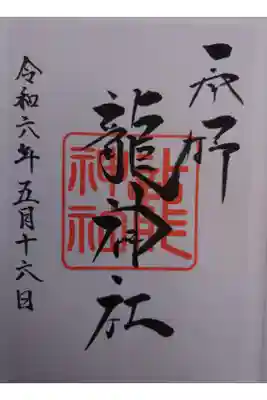 龍神社
令和六年五月十六日
龍
神社